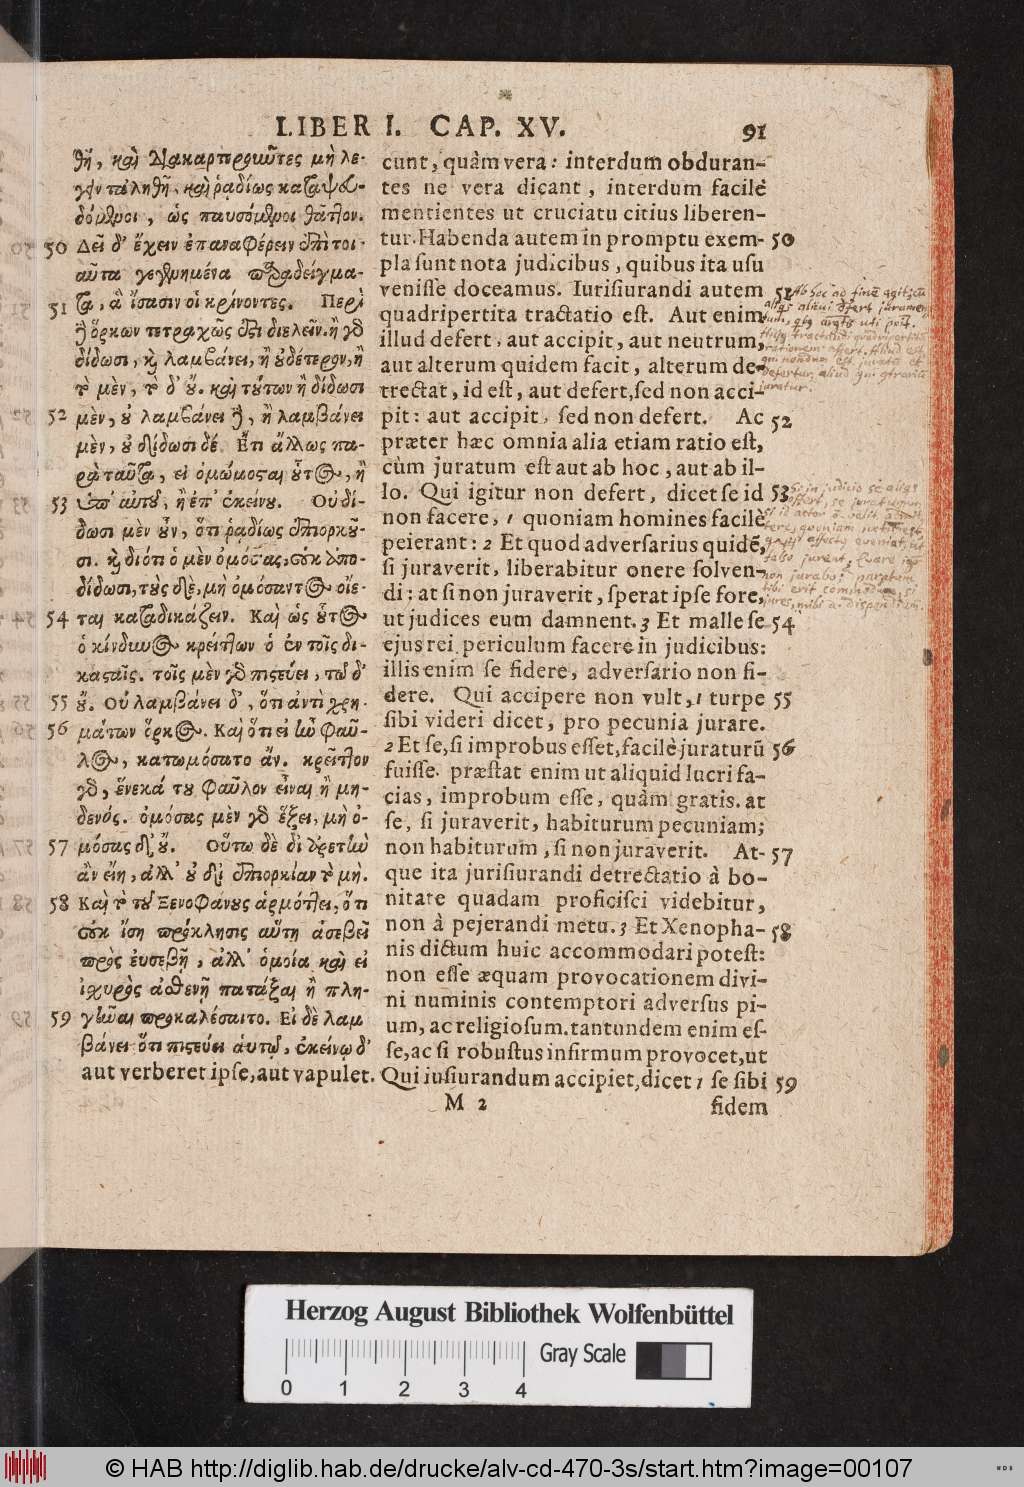 LIBER I. CAP. XV. 91
θῆ, καὶ διακαρτεροῦντες μὴ λέ-
γειν τἀληθῆ, καὶ ῥᾳδίως καταψευ-
δόμενοι, ὡς παυσόμενοι θᾶττον.
50 Δεῖ δ' ἔχειν ἐπαναφέρειν ἐπὶ τοι-
αῦτα γεγενημένα παραδείγμα-
51 τα, ἃ ἴσασιν οἱ κρίνοντες. Περὶ
δὲ ὅρκων τετραχῶς ἔστι διελεῖν. ἢ γὸ
δίδωσι, κὶ λαμβάνει, ἢ οὐδέτερον, ἢ
τὸ μὲν, τὸ δ' οὔ. καὶ τούτων ἢ δίδωσι
52 μὲν, οὐ λαμβάνει δὲ, ἢ λαμβάνει
μὲν, οὐ δίδωσι δέ. Ἔτι ἄλλως πα-
ρὰ ταῦτα, εἰ ὀμώμοσαι οὗτος, ἢ
53 ὑπ' αὐτοῦ, ἢ ἐπ' ἐκείνου. Οὐ δί-
δωσι μὲν οὖν, ὅτι ῥᾳδίως ἐπιορκοῦ-
σι. κὶ διότι ὁ μὲν ὀμόσας, οὐκ ἀπο-
δίδωσι, τοὺς δὲ, μὴ ὀμόσαντος οἴε-
54 ται καταδικάζειν. Καὶ ὡς οὗτος
ὁ κίνδυνος κρείττων ὁ ἐν τοῖς δι-
κασταῖς. τοῖς μὲν γὸ πιστεύει, τῷ δ'
55 οὔ. Οὐ λαμβάνει δ', ὅτι ἀντὶ χρη-
56 μάτων ὅρκος. Καὶ ὅτι εἰ ἦν φαῦ-
λος, κατωμόσατο ἄν. κρεῖττον
γὸ, ἕνεκά του φαῦλον εἶναι ἢ μη-
δενός. ὀμόσας μὲν γὸ ἕξει, μὴ ὀ-
57 μόσας δ' οὔ. Οὕτω δὲ δι' ἀρετὴν
ἂν εἴη, ἀλλ' οὐ δι' ἐπιορκίαν τὸ μή.
58 Καὶ τὸ τοῦ Ξενοφάνους ἁρμόττει, ὅτι
οὐκ ἴση πρόκλησις αὕτη ἀσεβεῖ
πρὸς εὐσεβῆ, ἀλλ' ὁμοία καὶ εἰ
ἰσχυρὸς ἀσθενῆ πατάξαι ἢ πλη-
59 γῆναι προκαλέσαιτο. Εἰ δὲ λαμ
βάνει ὅτι πιστεύει αὑτῷ, ἐκείνῳ δ'
cunt, quàm vera: interdum obduran-
tes ne vera dicant, interdum facilè
mentientes ut cruciatu citius liberen-
tur. Habenda autem in promptu exem- 50
pla sunt nota judicibus, quibus ita usu
venisse doceamus. Iurisiurandi autem 51
quadripertita tractatio est. Aut enim
illud defert, aut accipit, aut neutrum,
aut alterum quidem facit, alterum de-
trectat, id est, aut defert, sed non acci-
pit: aut accipit, sed non defert. Ac 52
præter hæc omnia alia etiam ratio est,
cùm juratum est aut ab hoc, aut ab il-
lo. Qui igitur non defert, dicet se id 53
non facere, 1 quoniam homines facilè
peierant: 2 Et quod adversarius quidē,
si juraverit, liberabitur onere solven-
di: at si non juraverit, sperat ipse fore,
ut judices eum damnent. 3 Et malle se 54
ejus rei periculum facere in judicibus:
illis enim se fidere, adversario non fi-
dere. Qui accipere non vult, 1 turpe 55
sibi videri dicet, pro pecunia jurare.
2 Et se, si improbus esset, facilè juraturū 56
fuisse. præstat enim ut aliquid lucri fa-
cias, improbum esse, quàm gratis. at
se, si juraverit, habiturum pecuniam;
non habiturum, si non juraverit. At- 57
que ita jurisiurandi detrectatio à bo-
nitate quadam proficisci videbitur,
non à pejerandi metu. 3 Et Xenopha- 58
nis dictum huic accommodari potest:
non esse æquam provocationem divi-
ni numinis contemptori adversus pi-
um, ac religiosum. tantundem enim es-
se, ac si robustus infirmum provocet, ut
aut verberet ipse, aut vapulet. Qui iusiurandum accipiet, dicet 1 se sibi 59
M 2 fidem
Herzog August Bibliothek Wolfenbüttel
Gray Scale
0 1 2 3 4
© HAB http://diglib.hab.de/drucke/alv-cd-470-3s/start.htm?image=00107